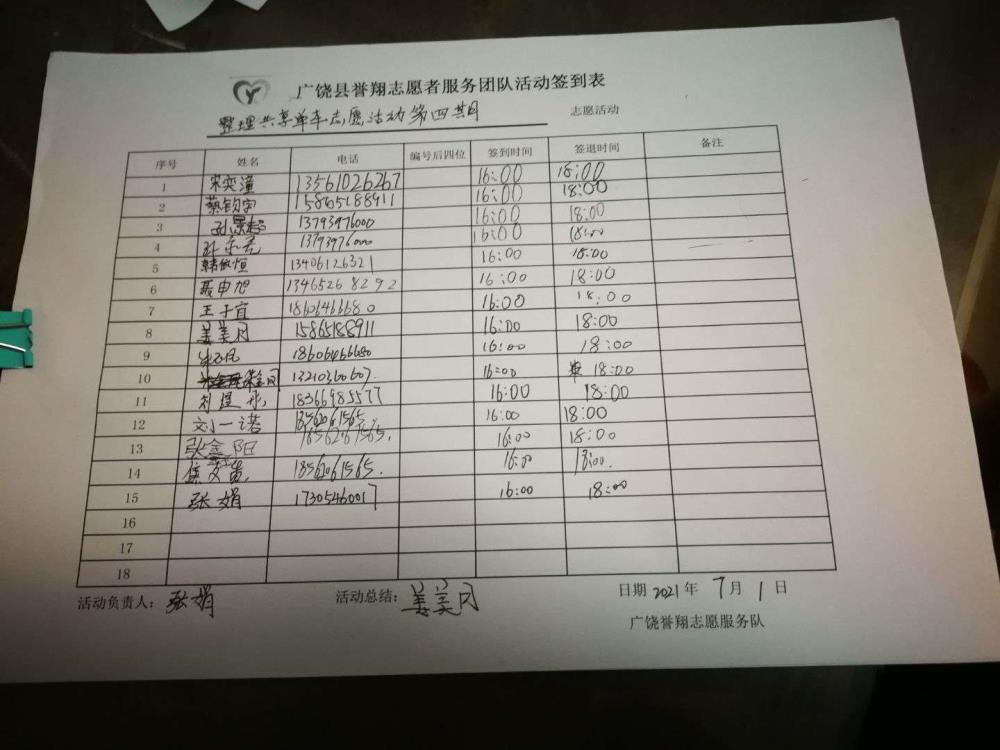 广饶县誉翔志愿者服务团队活动签到表
整理共享单车志愿活动第四期 志愿活动
序号 姓名 电话 编号后四位 签到时间 签退时间 备注
1 宋奕潼 13561026267 16:00 18:00
2 蔡钧宇 15865188911 16:00 18:00
3 13793976000 16:00 18:00
4 13793976000 16:00 18:00
5 13406126321 16:00 18:00
6 聂申旭 13465268292 16:00 18:00
7 王子宜 18606466680 16:00 18:00
8 姜美月 15865188911 16:00 18:00
9 18606466680 16:00 18:00
10 13210360607. 16:00 18:00
11 18366985577 16:00 18:00
12 刘一诺 18562061565 16:00 18:00
13 张鑫阳 16:00 18:00
14 18562061565. 16:00 18:00.
15 张娟 17305460017 16:00 18:00
16
17
18
活动负责人: 张娟 活动总结: 姜美月 日期 2021 年 7 月 1 日
广饶誉翔志愿服务队